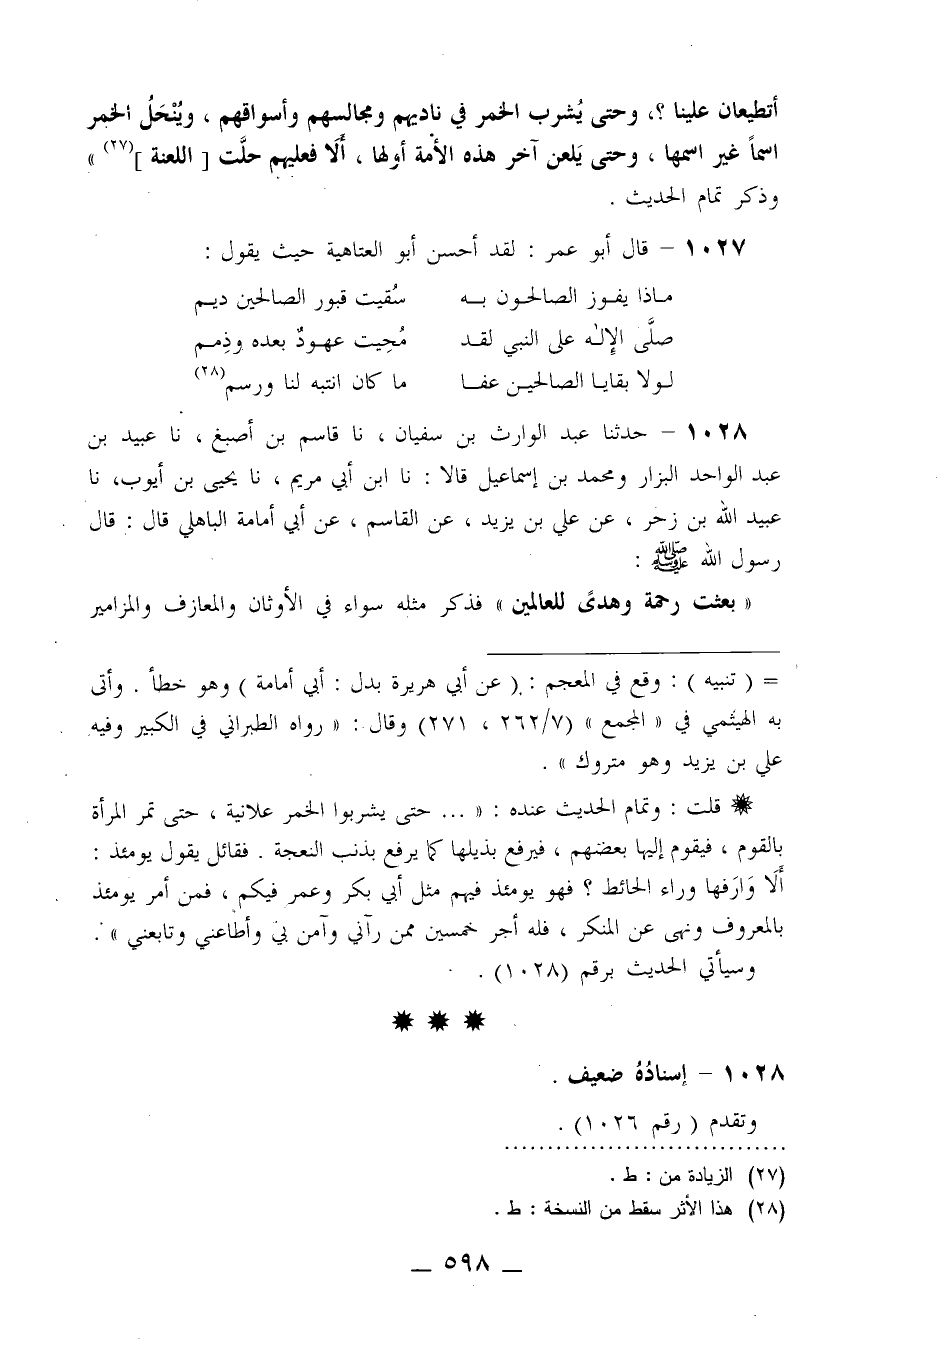 أتطيعان علينا ؟، وحتى يُشرب الخمر في ناديهم ومجالسهم وأسواقهم ، ويُنْحَلُ الخمر
اسماً غير اسمها ، وحتى يَلعن آخر هذه الأمة أولها ، أَلَا فعليهم حلَّت [ اللعنة ](٢٧) »
وذكر تمام الحديث .
١٠٢٧ – قال أبو عمر : لقد أحسن أبو العتاهية حيث يقول :
ماذا يفوز الصالحون به سُقيت قبور الصالحين ديم
صلَّى الإِلٰه على النبي لقد مُحِيت عهودٌ بعده وذِمم
لولا بقايا الصالحين عفا ما كان انتبه لنا ورسم(٢٨)
١٠٢٨ – حدثنا عبد الوارث بن سفيان ، نا قاسم بن أصبغ ، نا عبيد بن
عبد الواحد البزار ومحمد بن إسماعيل قالا : نا ابن أبي مريم ، نا يحيى بن أيوب، نا
عبيد الله بن زحر ، عن علي بن يزيد ، عن القاسم ، عن أبي أمامة الباهلي قال : قال
رسول الله ﷺ :
« بعثت رحمة وهدىً للعالمين » فذكر مثله سواء في الأوثان والمعازف والمزامير
= ( تنبيه ) : وقع في المعجم : ( عن أبي هريرة بدل : أبي أمامة ) وهو خطأ . وأتى
به الهيثمي في « المجمع » (٢٦٢/٧ ، ٢٧١) وقال : « رواه الطبراني في الكبير وفيه
علي بن يزيد وهو متروك » .
✹ قلت : وتمام الحديث عنده : « ... حتى يشربوا الخمر علانية ، حتى تمر المرأة
بالقوم ، فيقوم إليها بعضهم ، فيرفع بذيلها كما يرفع بذنب النعجة . فقائل يقول يومئذ :
أَلَا وَارَفها وراء الحائط ؟ فهو يومئذ فيهم مثل أبي بكر وعمر فيكم ، فمن أمر يومئذ
بالمعروف ونهى عن المنكر ، فله أجر خمسين ممن رآني وآمن بي وأطاعني وتابعني » .
وسيأتي الحديث برقم (١٠٢٨) .
✹ ✹ ✹
١٠٢٨ – إسنادُهُ ضعيف .
وتقدم ( رقم ١٠٢٦) .
(٢٧) الزيادة من : ط .
(٢٨) هذا الأثر سقط من النسخة : ط .
_ ٥٩٨ _